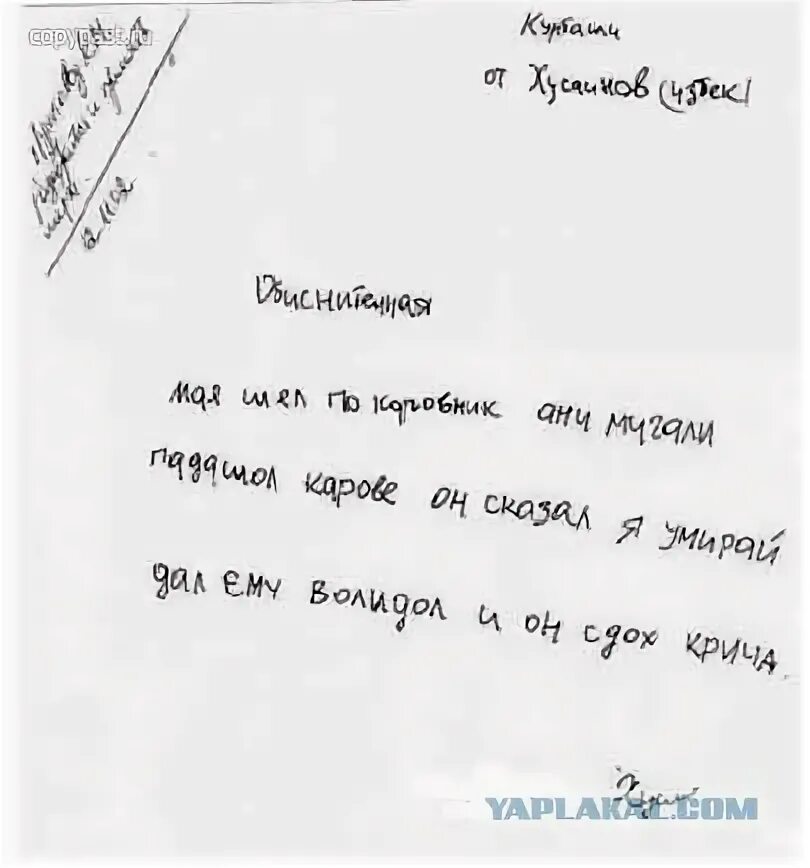 copypast.ru
Курбаши
от Хусаинов (изтек)
Обиснитенная
мая шел по каровник ани мугали
падашол карове он сказал я умирай
дал ему волидол и он сдох крича.
YAPLAKAL.COM